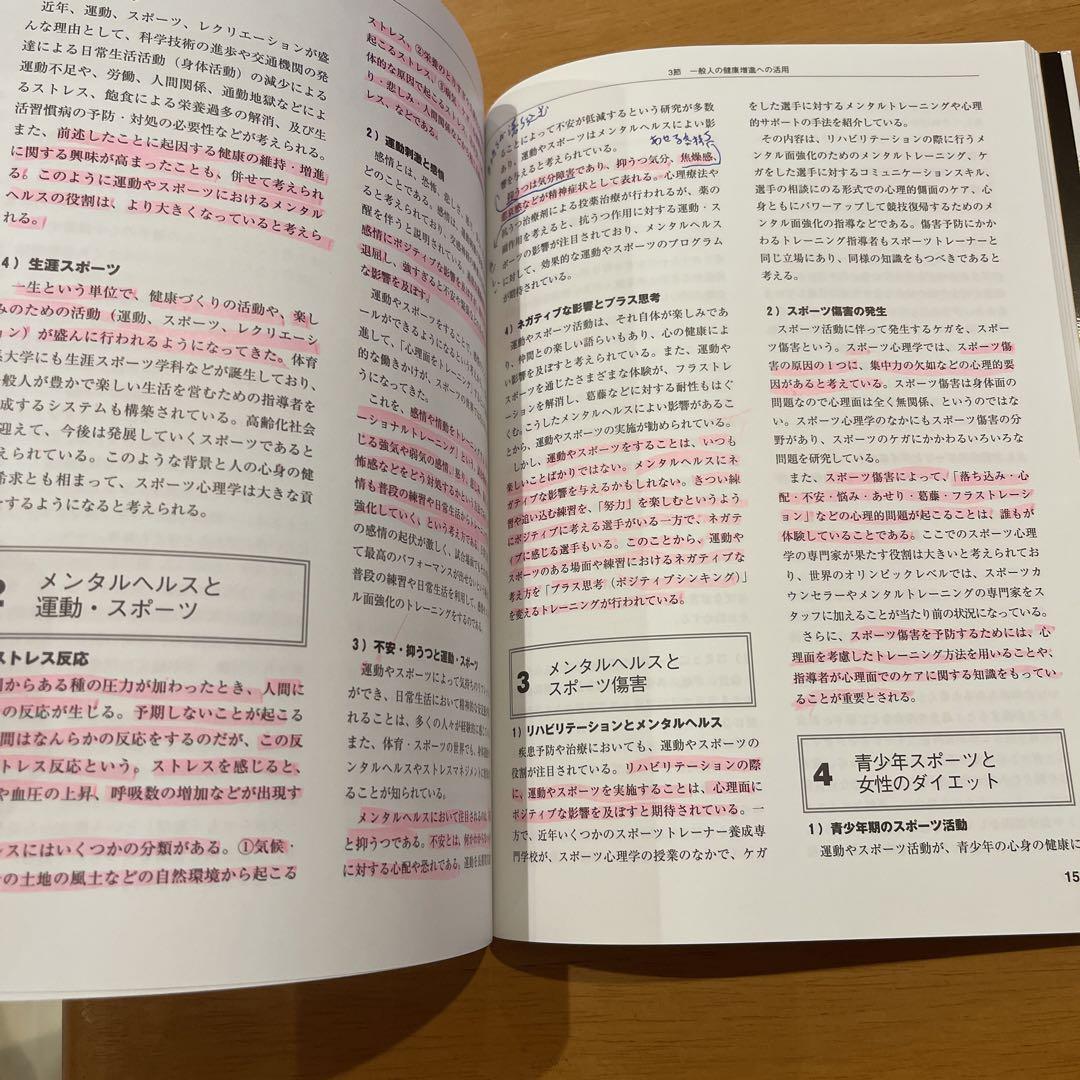 近年、運動、スポーツ、レクリエーションが盛
んな理由として、科学技術の進歩や交通機関の発
達による日常生活活動（身体活動）の減少による
運動不足や、労働、人間関係、通勤地獄などによ
るストレス、飽食による栄養過多の解消、及び生
活習慣病の予防・対処の必要性などが考えられる。
また、前述したことに起因する健康の維持・増進
に関する興味が高まったことも、併せて考えられ
る。このように運動やスポーツにおけるメンタル
ヘルスの役割は、より大きくなっていると考えら
れる。
4）生涯スポーツ
一生という単位で、健康づくりの活動や、楽し
みのための活動（運動、スポーツ、レクリエーシ
ョン）が盛んに行われるようになってきた。体育
系大学にも生涯スポーツ学科などが誕生しており、
一般人が豊かで楽しい生活を営むための指導者を
成するシステムも構築されている。高齢化社会
迎えて、今後は発展していくスポーツであると
えられている。このような背景と人の心身の健
希求とも相まって、スポーツ心理学は大きな貢
をするようになると考えられる。
2 メンタルヘルスと
運動・スポーツ
ストレス反応
からある種の圧力が加わったとき、人間に
の反応が生じる。予期しないことが起こる
間はなんらかの反応をするのだが、この反
トレス反応という。ストレスを感じると、
や血圧の上昇、呼吸数の増加などが出現す
レスにはいくつかの分類がある。①気候・
の土地の風土などの自然環境から起こる
ストレス、②栄養の
起こるストレス、③病気
体的な原因で起こる
り・悲しみ・人間関係
レス、などである。
2）運動刺激と感情
感情とは、恐怖、悲しさ、
どのことである。感情は、
ると考えられており、交感神経
醒を伴うと説明されている。
感情にポジティブな影響を
退屈し、強すぎると不安や
な影響を及ぼす。
運動やスポーツをすることで、
ールができるようになるという
進して、「心理面をトレーニング
的な働きかけが、スポーツの世界では
うになってきた。
これを、感情や情動をトレーニング
ーショナルトレーニング」という。
じる強気や弱気の感情、
怖感などをどう対処するかという
情も普段の練習や日常生活から
強化していく、という考え方である。
の感情の起伏が激しく、試合場面で
て最高のパフォーマンスが出せない
普段の練習や日常生活を利用して、
ル面強化のトレーニングをするのである。
3）不安・抑うつと運動・スポーツ
運動やスポーツによって気持ちの
ができ、日常生活において精神的な
れることは、多くの人々が経験的に
また、体育・スポーツの世界でも、
ンタルヘルスやストレスマネジメントに
ことが知られている。
メンタルヘルスにおいて注目されるのは、
と抑うつである。不安とは、何か
に対する心配や恐れである。
3節　一般人の健康増進への活用
ることによって不安が低減するという研究が多数
あり、運動やスポーツはメンタルヘルスによい影
響を与えると考えられている。
抑うつは気分障害であり、抑うつ気分、焦燥感、
などが精神症状として表れる。心理療法や
抗うつ治療剤による投薬治療が行われるが、薬の
副作用を考えると、抗うつ作用に対する運動・ス
ポーツの影響が注目されており、メンタルヘルス
に対して、効果的な運動やスポーツのプログラム
が期待されている。
4）ネガティブな影響とプラス思考
運動やスポーツ活動は、それ自体が楽しみであ
り、仲間との楽しい語らいもあり、心の健康によ
い影響を及ぼすと考えられている。また、運動や
スポーツを通じたさまざまな体験が、フラストレ
ーションを解消し、葛藤などに対する耐性もはぐ
くむ。こうしたメンタルヘルスによい影響があるこ
とから、運動やスポーツの実施が勧められている。
しかし、運動やスポーツをすることは、いつも
楽しいことばかりではない。メンタルヘルスにネ
ガティブな影響を与えるかもしれない。きつい練
習や追い込む練習を、「努力」を楽しむというよう
にポジティブに考える選手がいる一方で、ネガテ
ィブに感じる選手もいる。このことから、運動や
スポーツのある場面や練習におけるネガティブな
考え方を「プラス思考（ポジティブシンキング）」
を変えるトレーニングが行われている。
3 メンタルヘルスと
スポーツ傷害
1）リハビリテーションとメンタルヘルス
疾患予防や治療においても、運動やスポーツの
役割が注目されている。リハビリテーションの際
に、運動やスポーツを実施することは、心理面に
ポジティブな影響を及ぼすと期待されている。一
方で、近年いくつかのスポーツトレーナー養成専
門学校が、スポーツ心理学の授業のなかで、ケガ
をした選手に対するメンタルトレーニングや心理
的サポートの手法を紹介している。
その内容は、リハビリテーションの際に行うメ
ンタル面強化のためのメンタルトレーニング、ケ
ガをした選手に対するコミュニケーションスキル、
選手の相談にのる形式での心理的側面のケア、心
身ともにパワーアップして競技復帰するためのメ
ンタル面強化の指導などである。傷害予防にかか
わるトレーニング指導者もスポーツトレーナーと
同じ立場にあり、同様の知識をもつべきであると
考える。
2）スポーツ傷害の発生
スポーツ活動に伴って発生するケガを、スポー
ツ傷害という。スポーツ心理学では、スポーツ傷
害の原因の1つに、集中力の欠如などの心理的要
因があると考えている。スポーツ傷害は身体面の
問題なので心理面は全く無関係、というのではな
い。スポーツ心理学のなかにもスポーツ傷害の分
野があり、スポーツのケガにかかわるいろいろな
問題を研究している。
また、スポーツ傷害によって、「落ち込み・心
配・不安・悩み・あせり・葛藤・フラストレーシ
ョン」などの心理的問題が起こることは、誰もが
体験していることである。ここでのスポーツ心理
学の専門家が果たす役割は大きいと考えられてお
り、世界のオリンピックレベルでは、スポーツカ
ウンセラーやメンタルトレーニングの専門家をス
タッフに加えることが当たり前の状況になっている。
さらに、スポーツ傷害を予防するためには、心
理面を考慮したトレーニング方法を用いることや、
指導者が心理面でのケアに関する知識をもってい
ることが重要とされる。
4 青少年スポーツと
女性のダイエット
1）青少年期のスポーツ活動
運動やスポーツ活動が、青少年の心身の健康に
15